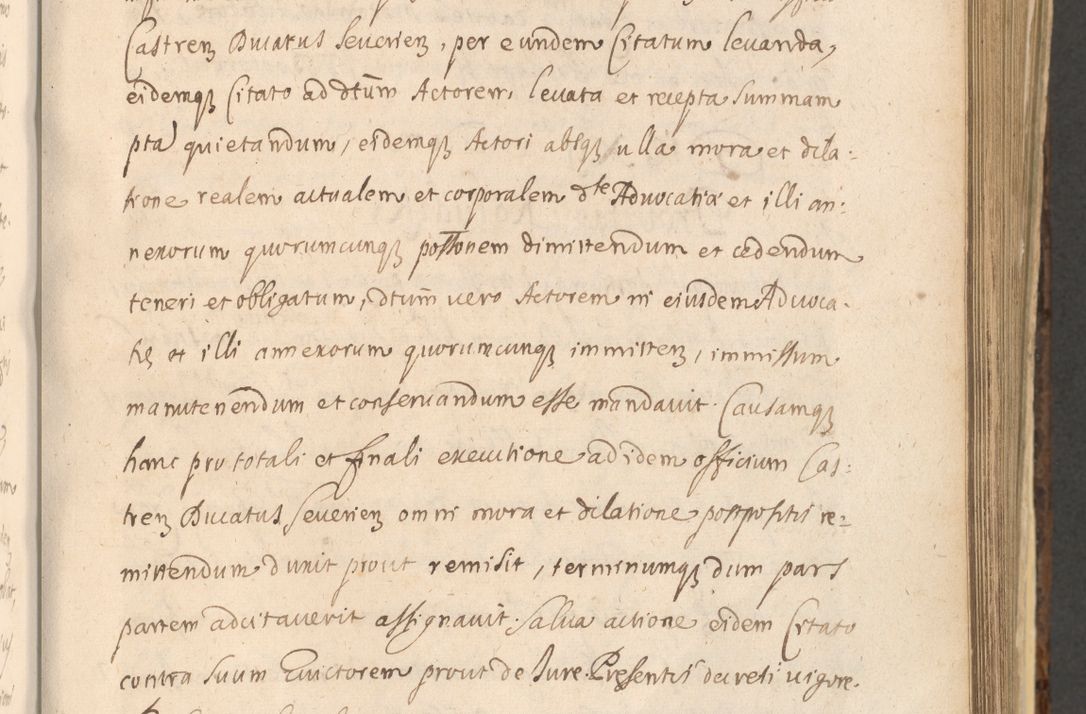 Castren Ducatus Severien, per eundem Citatum levanda,
eidemq Citato ad dtum Actorem, levata et recepta Summam
pta quietandum, eidemq Actori absq ulla mora et dila:
tione realem actualem et corporalem dte Advocatiæ et illi an:
nexorum quorumcunq possonem dimittendum et cedendum
teneri et obligatum, dtum vero Actorem in eiusdem Advoca-
tis et illi annexorum quorumcunq immitten, immissum
manutenendum et conservandum esse mandavit. Causamq
hanc pro totali et finali executione ad idem officium Cas:
tren Ducatus Severien omni mora et dilatione postpositis re=
mittendum duxit prout remisit, terminumq dum pars
partem adcitaverit assignavit. Salva actione eidem Citato
contra Suum Evictorem prout de Jure. Præsentis decreti vigore.